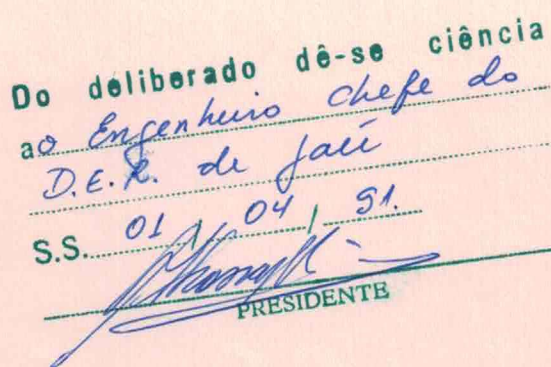 Do deliberado dê-se ciência
ao Engenheiro Chefe do
D.E.R. de Jaú
S.S. 01 / 04 / 91.
PRESIDENTE